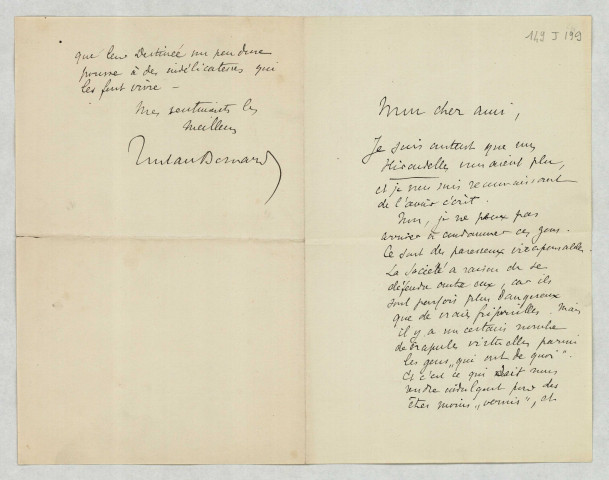 149 I 199
Mon cher ami,
Je suis content que mes
Hirondelles vous aient plu,
et je vous suis reconnaissant
de l'avoir écrit.
Non, je ne peux pas
arriver à condamner ces gens.
Ce sont des paresseux irresponsables.
La société a raison de se
défendre contre eux, car ils
sont parfois plus dangereux
que de vraies fripouilles. Mais
il y a un certain nombre
de crapules virtuelles parmi
les gens "qui ont de quoi".
Et c'est ce qui doit nous
rendre indulgent pour des
êtres moins "vernis", et
que leur Destinée un peu dure
pousse à des indélicatesses qui
les font vivre —
Mes sentiments les
meilleurs
Tristan Bernard